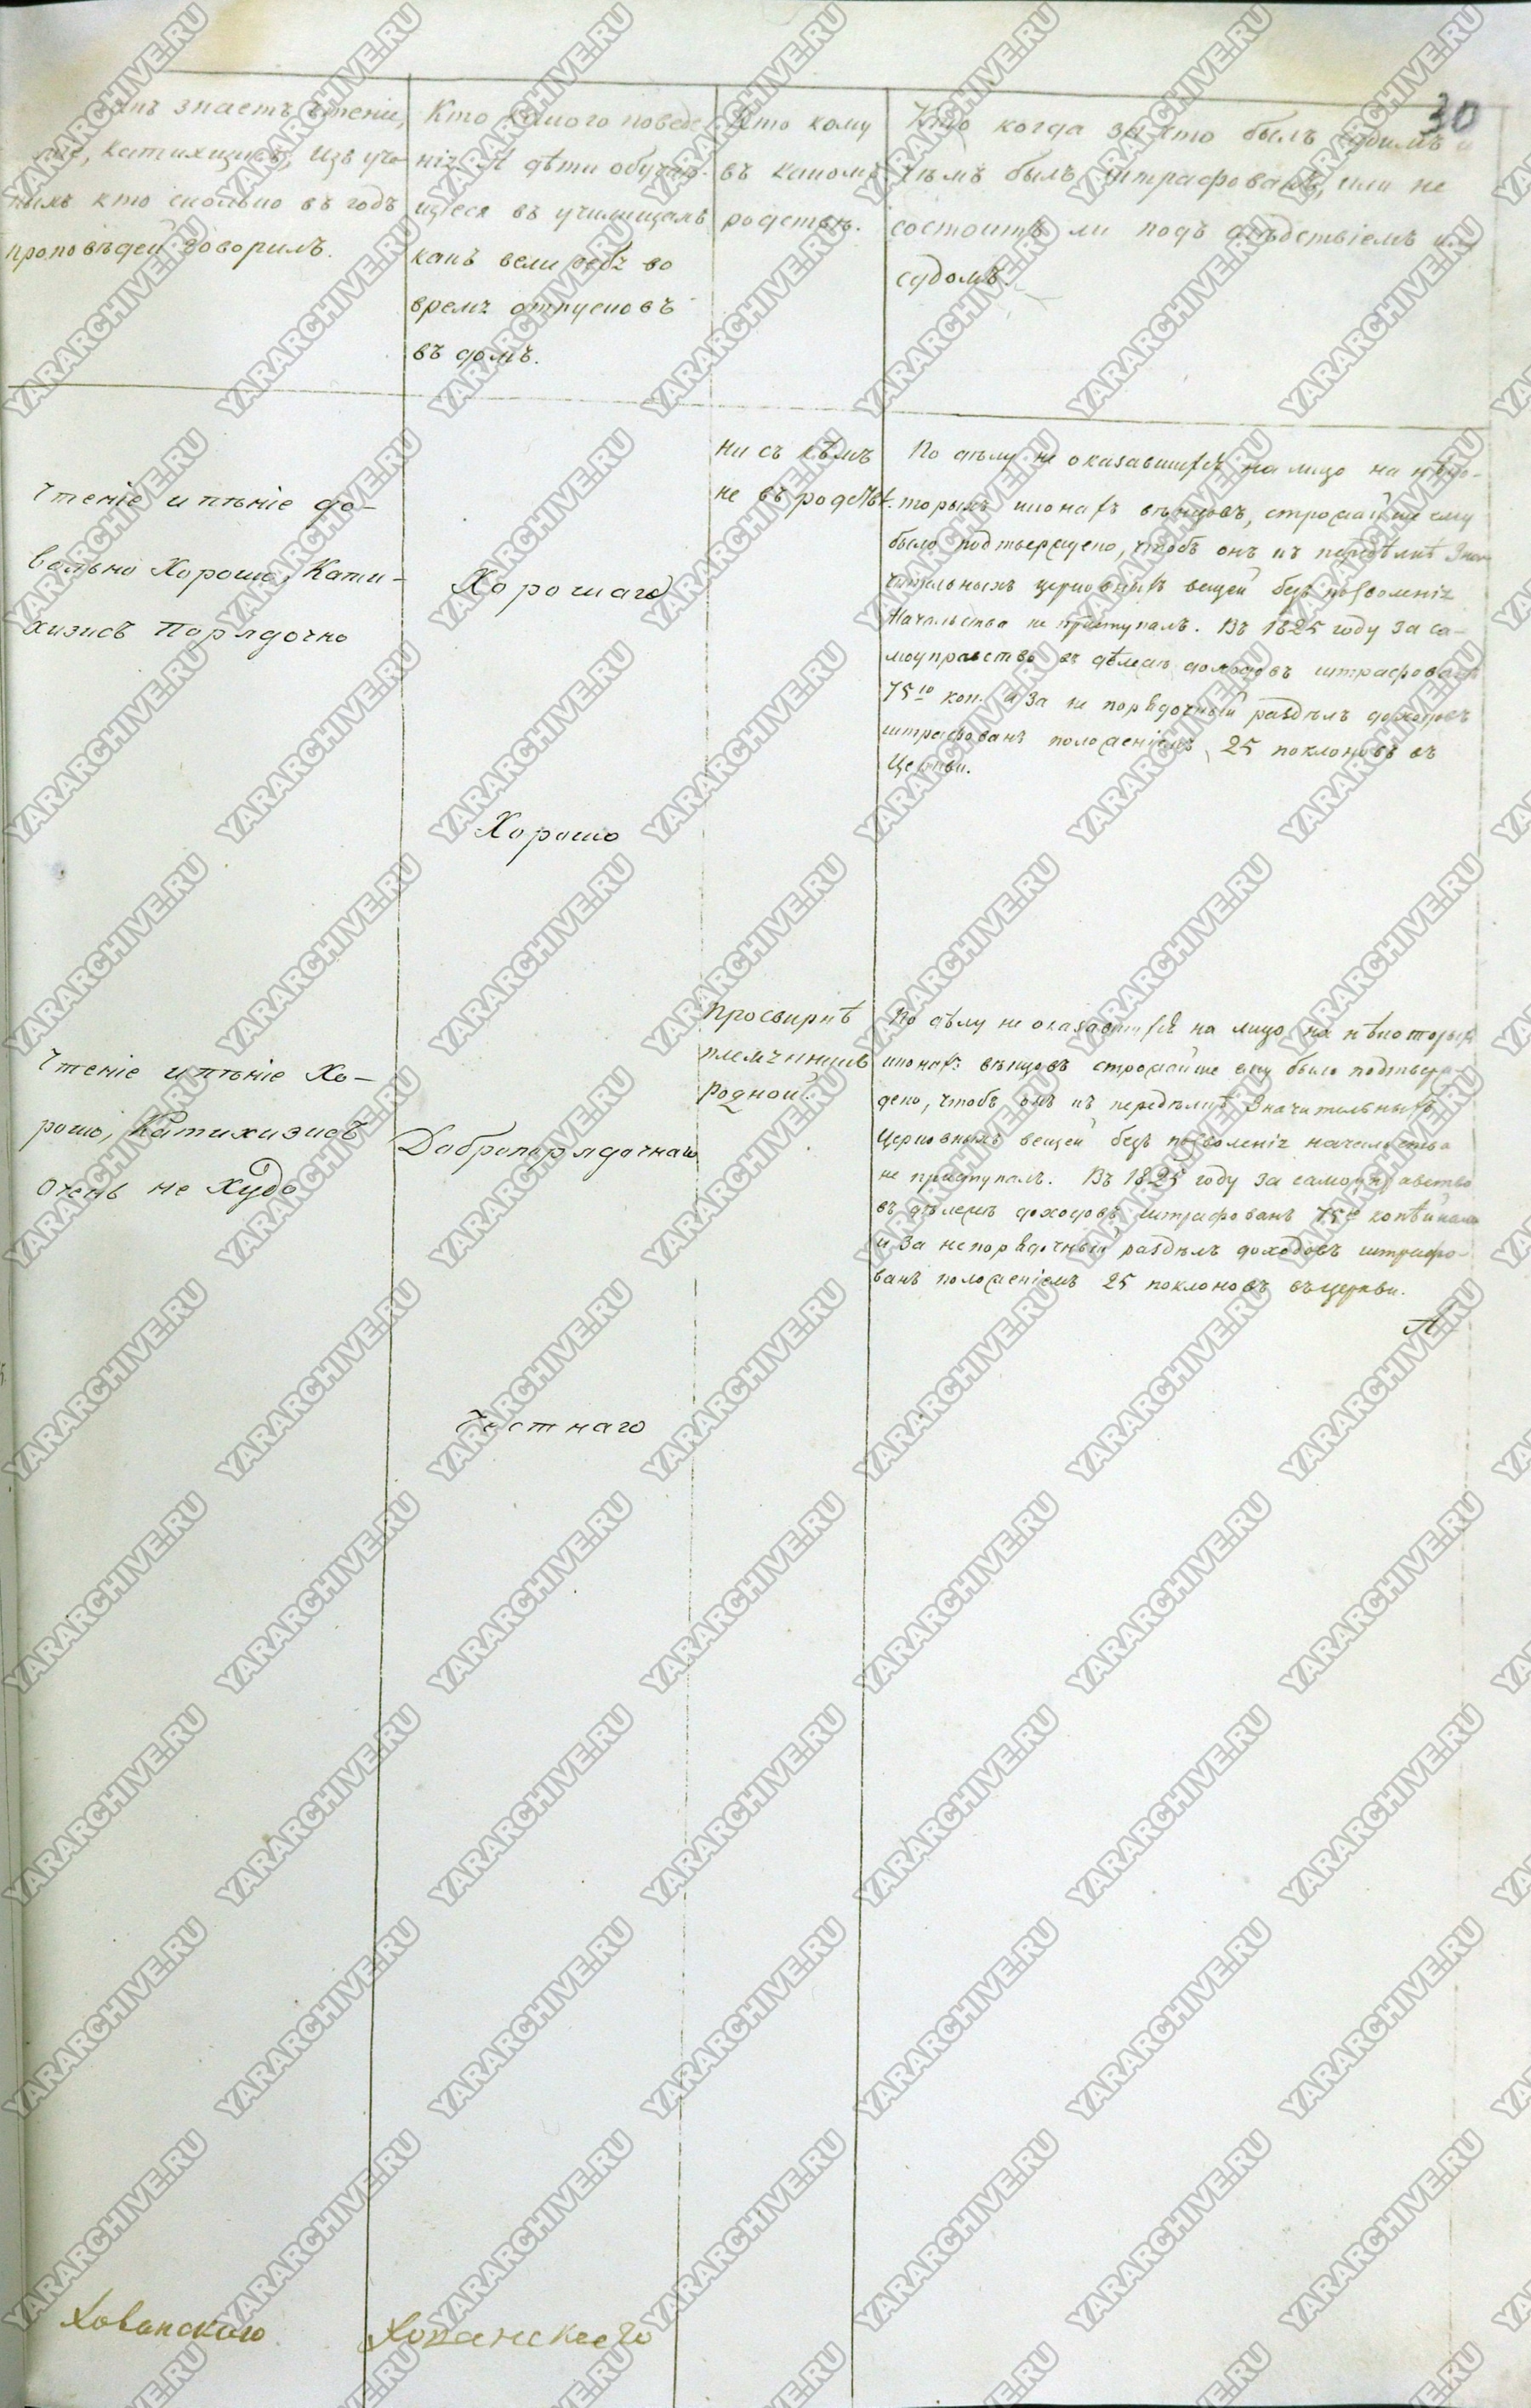 30
знаетъ чтеніе,
ніе, катихизисъ, Изъ уче-
ныхъ кто сколько въ годъ
проповѣдей говорилъ.
Кто какого поведе-
нія. А дѣти обучаю-
щіеся въ училищахъ
какъ вели себя во
время отпусковъ
въ домъ.
Кто кому
въ какомъ
родствѣ.
Кто когда за что былъ судимъ и
чѣмъ былъ штрафованъ, или не
состоитъ ли подъ слѣдствіемъ или
судомъ.
Чтеніе и пѣніе до-
вольно Хорошо, Кати-
хизисъ порядочно
Хорошаго
ни съ кѣмъ
не въ родствѣ.
По дѣлу не оказавшихся на лицо на нѣко-
торыхъ иконахъ вѣнцовъ, строжайше ему
было подтверждено, чтобъ онъ къ передѣлкѣ Зна-
чительныхъ церковныхъ вещей безъ позволенія
Начальства не приступалъ. Въ 1825 году за са-
моуправство въ дѣлежѣ доходовъ штрафованъ
75ю коп. и За не порядочный раздѣлъ доходовъ
штрафованъ положеніемъ 25 поклоновъ въ
Церкви.
Хорошо
Чтеніе и пѣніе Хо-
рошо, Катихизисъ
очень не худо
Добропорядочнаго
Просвирнѣ
племянникъ
родной.
По дѣлу не оказавшихся на лицо на нѣкоторыхъ
иконахъ вѣнцовъ строжайше ему было подтверж-
дено, чтобъ онъ къ передѣлкѣ Значительныхъ
Церковныхъ вещей безъ позволенія начальства
не приступалъ. Въ 1825 году за самоуправство
въ дѣлежѣ доходовъ штрафованъ 75ю копѣйками
и За непорядочный раздѣлъ доходовъ штрафо-
ванъ положеніемъ 25 поклоновъ въ церкви.
Честнаго
Хованскаго Хованскаго
YARARCHIVE.RU